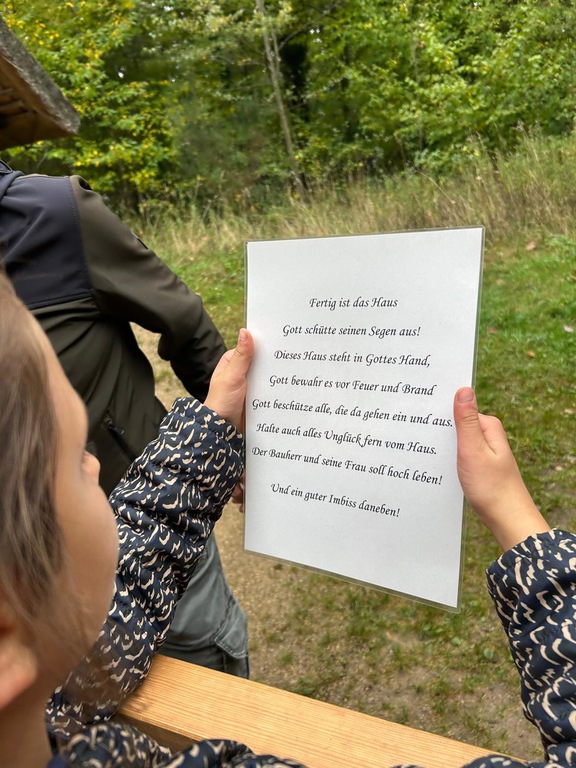 Fertig ist das Haus
Gott schütte seinen Segen aus!
Dieses Haus steht in Gottes Hand,
Gott bewahr es vor Feuer und Brand
Gott beschütze alle, die da gehen ein und aus.
Halte auch alles Unglück fern vom Haus.
Der Bauherr und seine Frau soll hoch leben!
Und ein guter Imbiss daneben!